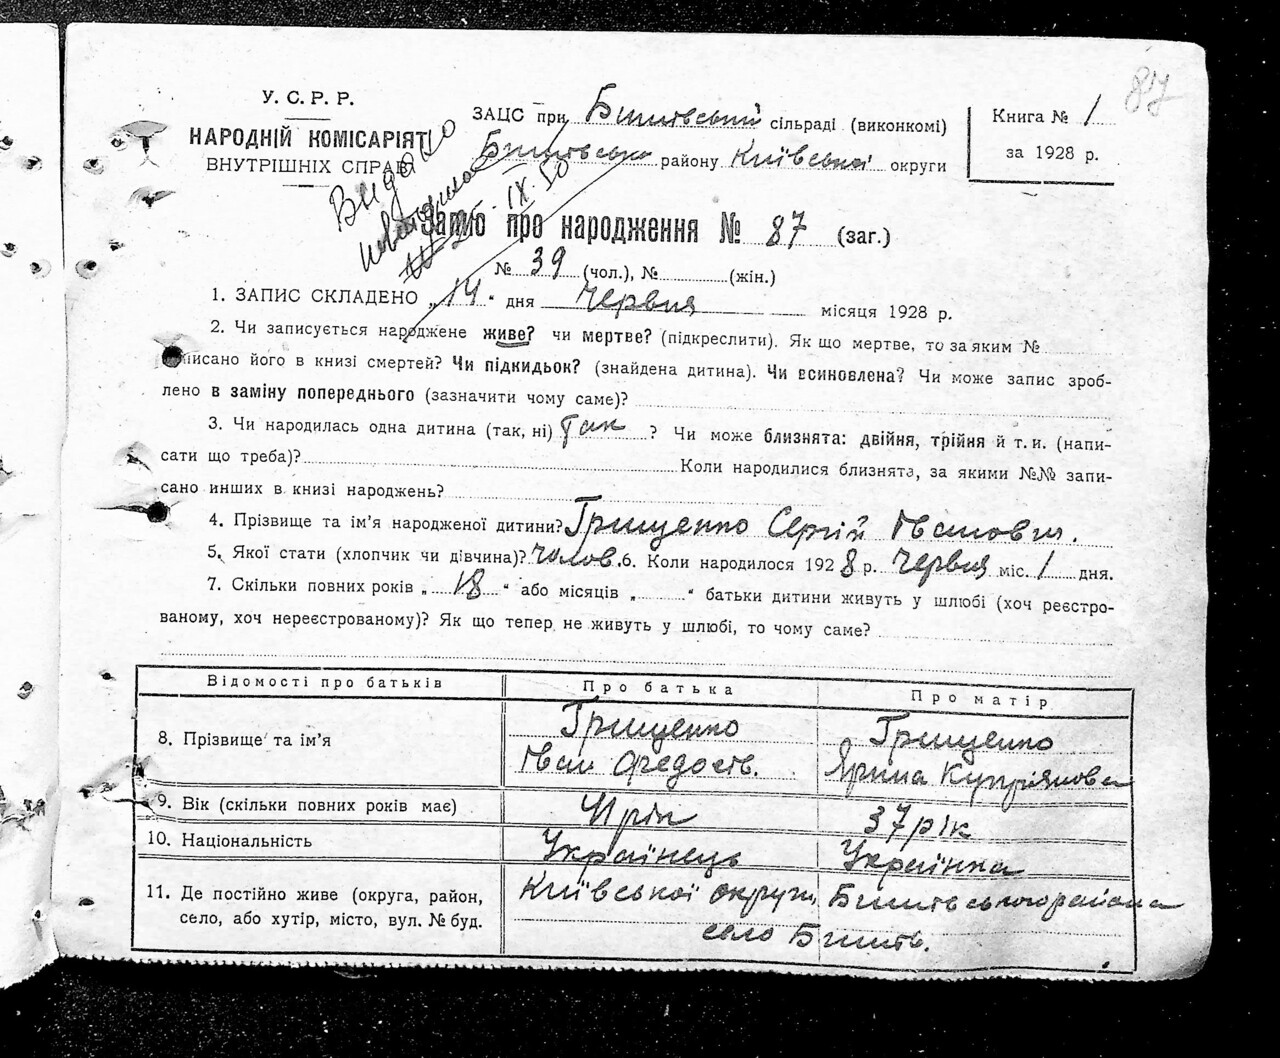 87
У. С. Р. Р.
НАРОДНІЙ КОМІСАРІЯТ
ВНУТРІШНІХ СПРАВ
ЗАЦС при Бишівський сільраді (виконкомі)
Бишівсько району Київської округи
Книга № 1
за 1928 р.
Видано
IX. 50
Запис про народження № 87 (заг.)
№ 39 (чол.), № (жін.)
1. ЗАПИС СКЛАДЕНО „14“ дня Червня місяця 1928 р.
2. Чи записується народжене живе? чи мертве? (підкреслити). Як що мертве, то за яким №
записано його в книзі смертей? Чи підкидьок? (знайдена дитина). Чи всиновлена? Чи може запис зроб-
лено в заміну попереднього (зазначити чому саме)?
3. Чи народилась одна дитина (так, ні) так ? Чи може близнята: двійня, трійня й т. и. (напи-
сати що треба)? Коли народилися близнята, за якими №№ запи-
сано инших в книзі народжень?
4. Прізвище та ім’я народженої дитини? Грищенко Сергій Іванович.
5. Якої стати (хлопчик чи дівчина)? чолов. 6. Коли народилося 1928 р. червня міс. 1 дня.
7. Скільки повних років „18“ або місяців „ “ батьки дитини живуть у шлюбі (хоч реєстро-
ваному, хоч нереєстрованому)? Як що тепер не живуть у шлюбі, то чому саме?
Відомості про батьків Про батька Про матір
8. Прізвище та ім’я
Грищенко
Іван Федосів.
Грищенко
Ярина Купріянова
9. Вік (скільки повних років має) 41 рік 37 рік
10. Національність Українець Українка
11. Де постійно живе (округа, район,
село, або хутір, місто, вул. № буд.
Київської округи, Бишівського района
село Бишів.